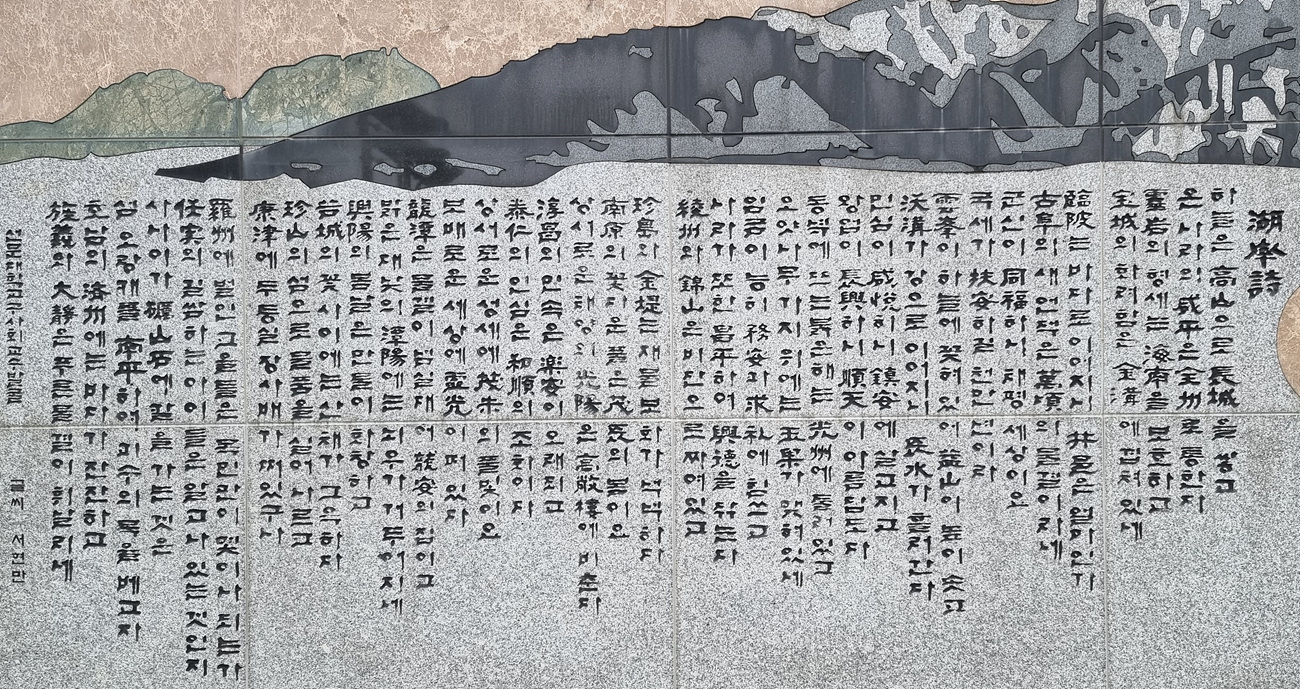 湖南詩
하늘은 高山으로 長城을 쌓고
온 나라의 咸平은 全州로 통한다
靈岩의 형세는 海南을 보호하고
宝城의 화려함은 金溝에 잠겨 있네
臨陂는 바다로 이어지니 井邑은 얼마인가
古阜의 새 언덕은 萬頃의 물결이라네
군신이 同福하니 태평 세상이요
국세가 扶安하길 천만년이라
雲峯이 하늘에 꽂혀 있어 益山이 높이 솟고
沃溝가 강으로 이어지니 長水가 흘러간다
민심이 咸悅하니 鎭安에 살고지고
왕업이 長興하니 順天이 아름답도다
동녘에 뜨는 붉은 해는 光州에 둘러 있고
오얏나무 가지 위에는 玉果가 맺혀 있네
임금이 능히 務安과 求礼에 힘쓰고
나라가 또한 昌平하여 興德을 닦는다
綾州의 錦山은 비단으로 짜여 있고
珍島와 金堤는 재물 보화가 넉넉하다
南原의 꽃다운 풀은 茂長의 봄이요
상서로운 해양의 光陽은 高敞樓에 비춘다
淳昌의 민속은 楽安이 오래되고
泰仁의 인심은 和順의 조화이다
상서로운 성세에 茂朱의 풀빛이요
보배로운 세상에 灵光이 떠 있다
龍潭은 물결이 넘실대어 龍安의 집이고
맑은 대낮의 潭陽에는 뇌우가 거두어지네
興陽의 봄날은 만물이 화창하고
谷城의 꽃 사이에는 산채가 그윽하다
珍山의 섬으로 물품을 실어 나르고
康津에 두둥실 장사배가 떠 있구나
羅州에 벌인 그물들은 목민관이 멋이나 되는가
任実의 길쌈하는 아이들은 알고나 있는 것인지
사나이가 礪山石에 칼을 가는 것은
섬 오랑캐를 南平하여 괴수의 목을 베고자
호남의 済州에는 바다가 잔잔하고
旌義와 大静은 푸른 물결이 휘날리네
선문대학교 주사회교육관 물품
글씨 서현만